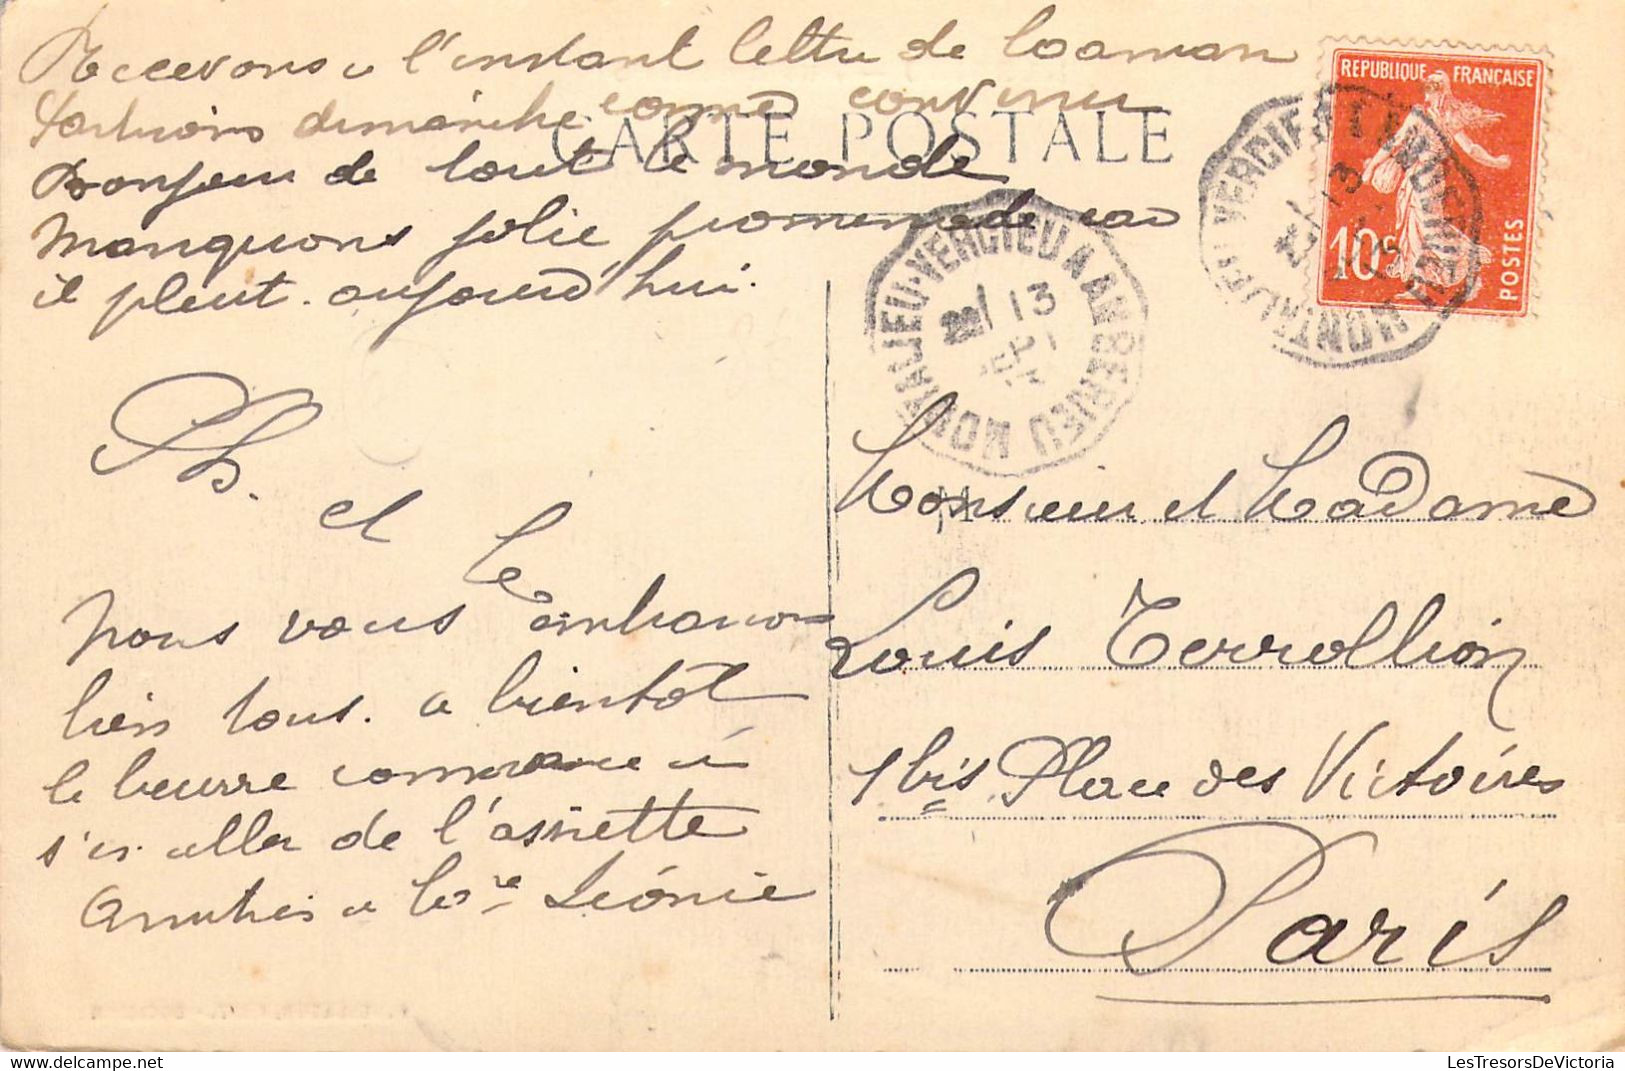 Recevons à l'instant lettre de
Partirons dimanche comme convenu
CARTE POSTALE
Bonjour de tout le monde
Manquons jolie promenade car
il pleut aujourd'hui.
Ph. et
nous vous embrassons
bien tous. a bientôt
le beurre commence à
s'en aller de l'assiette
Amitiés a Léonie
REPUBLIQUE FRANÇAISE
10c
POSTES
MONTALIEU-VERCIEU A AMBERIEU
13
MONTALIEU-VERCIEU A AMBERIEU
13
Monsieur et Madame
Louis Terrollion
1 bis Place des Victoires
Paris
LesTresorsDeVictoria.com